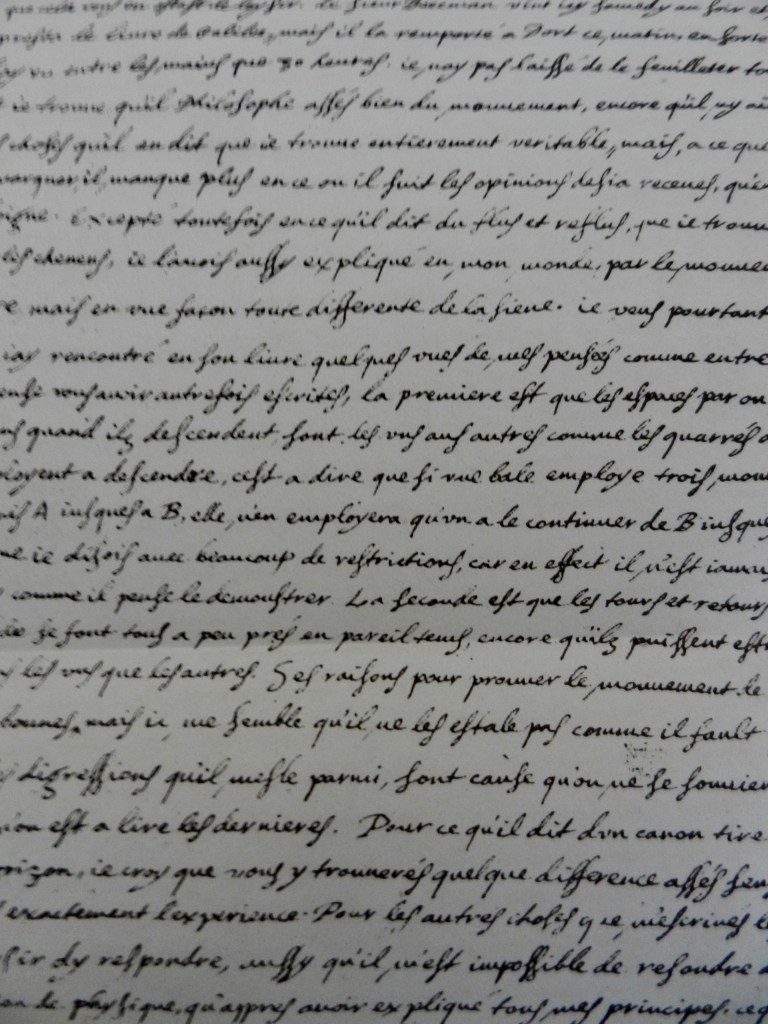 le sieur Beecman vint icy samedy au soir et
le livre de Galilée, mais il la remporté a Dort ce matin, en sorte
eu entre les mains que 30 heures. ie n'ay pas laissé de le feuilleter to
ie trouue qu'il philosophe assés bien du mouuement, encore qu'il n'y ai
choses qu'il en dit que ie trouue entierement veritable, mais, a ce que
marquer il manque plus en ce ou il suit les opinions desia receues, qu'e
Excepté toutefois en ce qu'il dit du flus et reflus, que ie trouu
les cheueus, ie l'auois aussy expliqué en mon monde, par le mouue
mais en vne façon toute differente de la siene. ie veus pourtant
iay rencontré en son liure quelques vnes de mes pensées comme entre
pense vous auoir autrefois escrites, la premiere est que les espaces par ou
quand ilz descendent sont les vns aus autres comme les quarrés
a descendre, c'est a dire que si vne bale employe trois mom
A iusques a B, elle n'en employera qu'vn a le continuer de B iusque
ie disois auec beaucoup de restrictions, car en effect il n'est iamais
comme il pense le demonstrer. La seconde est que les tours et retours
se font tous a peu pres en pareil tems, encore qu'ilz puissent est
les vns que les autres. Ses raisons pour prouuer le mouuement de
bonnes, mais il me semble qu'il ne les estale pas comme il fault
digressions qu'il mesle parmi, sont cause qu'on ne se souuien
on est a lire les dernieres. Pour ce qu'il dit d'vn canon tiré
orizon, ie croy que vous y trouuerés quelque difference assés sen
exactement l'experience. Pour les autres choses que m'escriues
d'y respondre, aussy qu'il m'est impossible de resoudre
de physique, qu'apres auoir expliqué tous mes principes. ce q